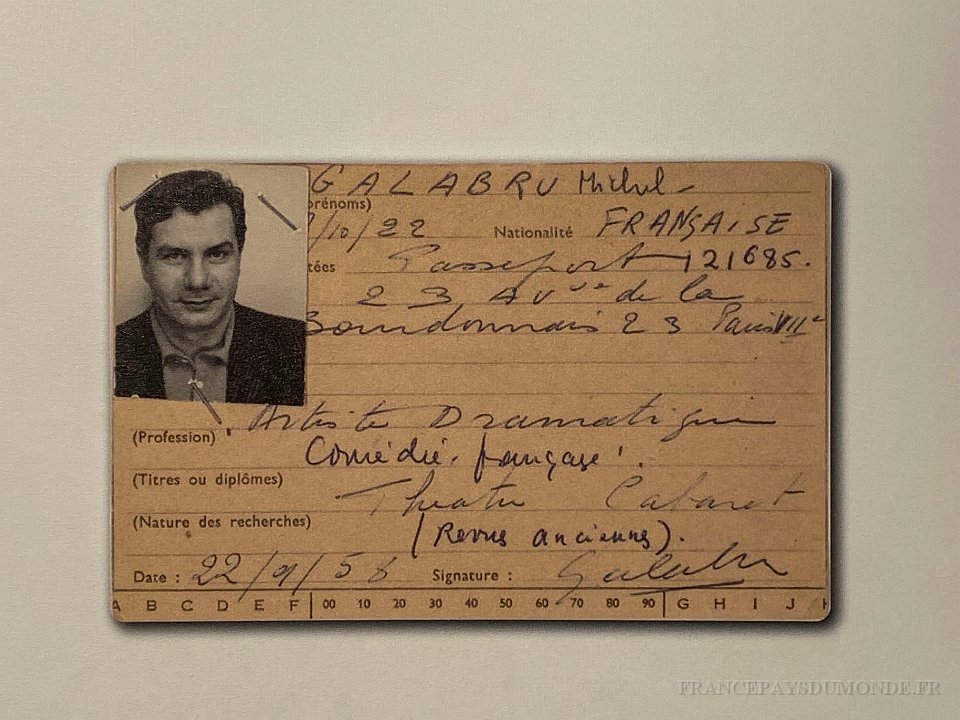 GALABRU Michel -
prénoms)
/10/22 Nationalité FRANÇAISE
tées Passeport 121685.
23 Avue de la
Bourdonnais 23 Paris VIIe
(Profession) Artiste Dramatique
Comédie. française.
(Titres ou diplômes)
Theatre Cabaret
(Nature des recherches)
(Revues anciennes).
Date : 22/9/58 Signature : Galabru
A B C D E F 00 10 20 30 40 50 60 70 80 90 G H I J
FRANCEPAYSDUMONDE.FR